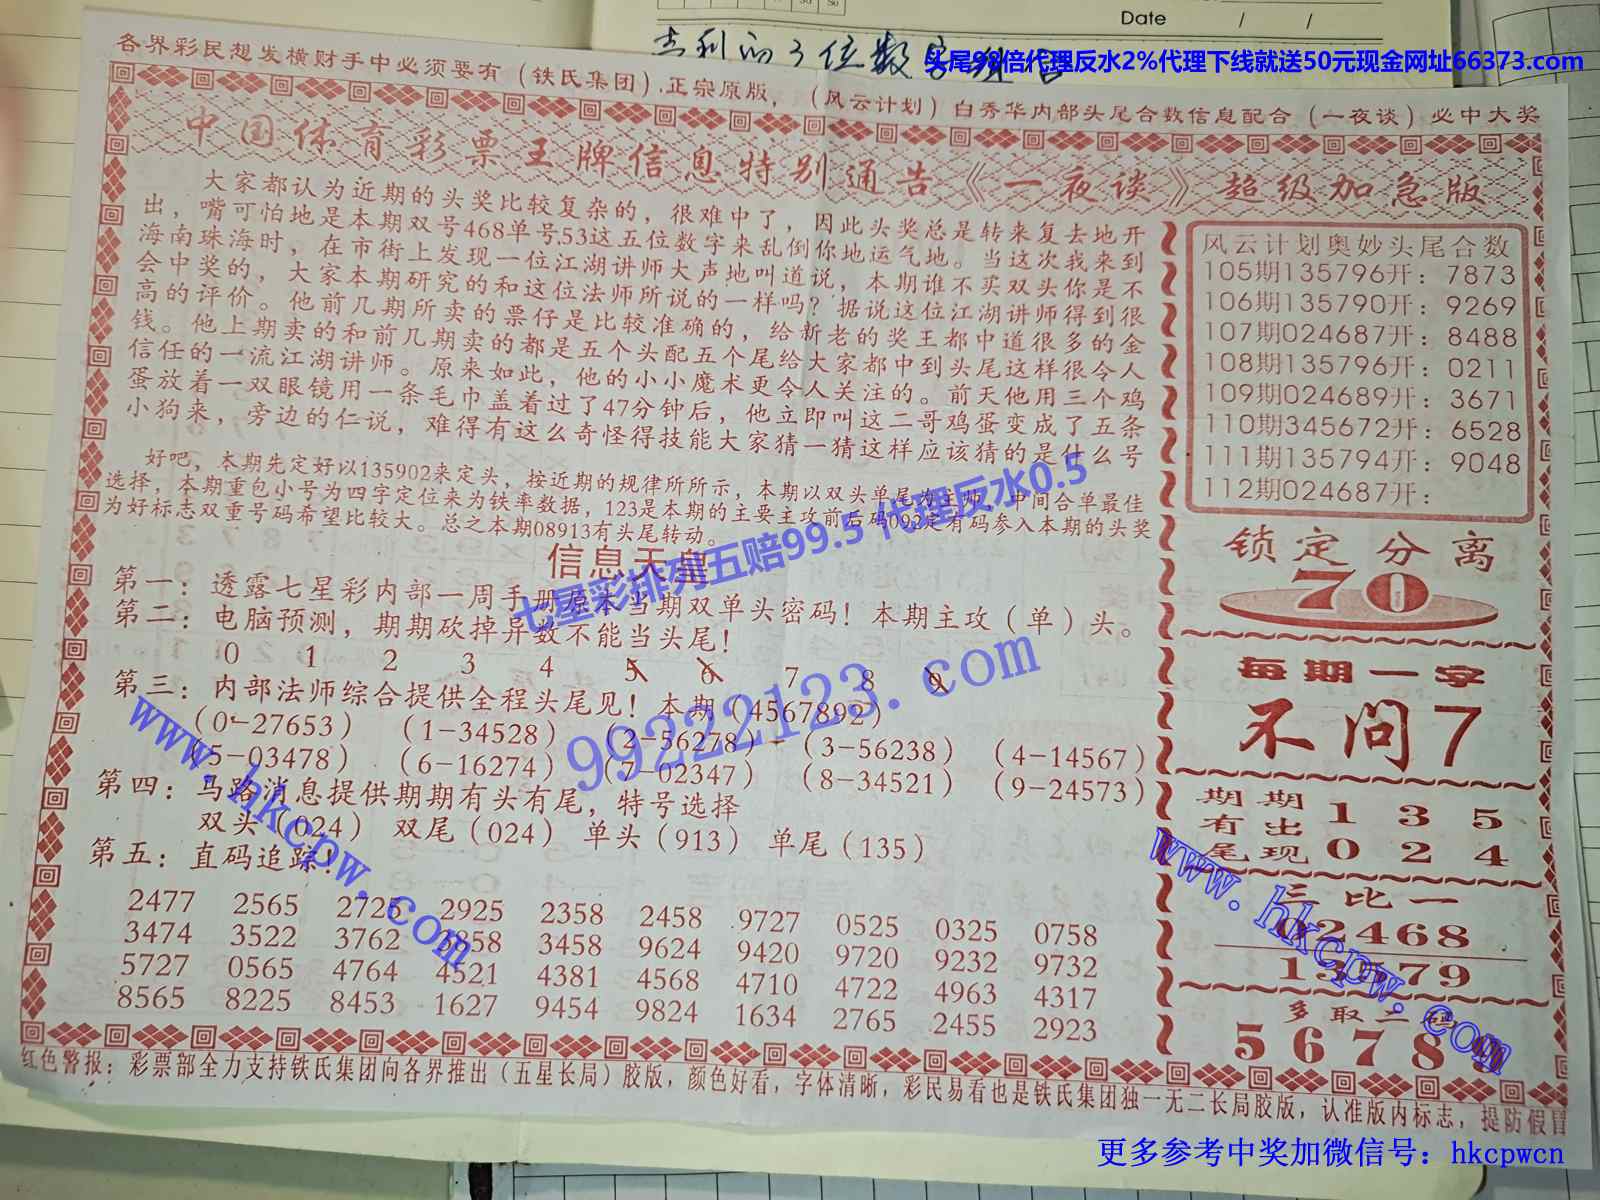 Date / /
吉利的3位数字组合
头尾98倍代理反水2%代理下线就送50元现金网址66373.com
各界彩民想发横财手中必须要有（铁氏集团）.正宗原版，（风云计划）白秀华内部头尾合数信息配合（一夜谈）必中大奖
中国体育彩票王牌信息特别通告《一夜谈》超级加急版
大家都认为近期的头奖比较复杂的，很难中了，因此头奖总是转来复去地开
出，嘴可怕地是本期双号468单号53这五位数字来乱倒你地运气地。当这次我来到
海南珠海时，在市街上发现一位江湖讲师大声地叫道说，本期谁不买双头你是不
会中奖的，大家本期研究的和这位法师所说的一样吗？据说这位江湖讲师得到很
高的评价。他前几期所卖的票仔是比较准确的，给新老的奖王都中道很多的金
钱。他上期卖的和前几期卖的都是五个头配五个尾给大家都中到头尾这样很令人
信任的一流江湖讲师。原来如此，他的小小魔术更令人关注的。前天他用三个鸡
蛋放着一双眼镜用一条毛巾盖着过了47分钟后，他立即叫这二哥鸡蛋变成了五条
小狗来，旁边的仁说，难得有这么奇怪得技能大家猜一猜这样应该猜的是什么号
好吧，本期先定好以135902来定头，按近期的规律所所示，本期以双头单尾为主师，中间合单最佳
选择，本期重包小号为四字定位来为铁率数据，123是本期的主要主攻前后码092定有码参入本期的头奖
为好标志双重号码希望比较大。总之本期08913有头尾转动。
信息天皇
第一：透露七星彩内部一周手册原本当期双单头密码！本期主攻（单）头。
第二：电脑预测，期期砍掉异数不能当头尾！
0 1 2 3 4 5 6 7 8 9
第三：内部法师综合提供全程头尾见！本期（4567892）
（0-27653）（1-34528）（2-56278）-（3-56238）（4-14567）
（5-03478）（6-16274）（7-02347）（8-34521）（9-24573）
第四：马路消息提供期期有头有尾，特号选择
双头（024） 双尾（024） 单头（913） 单尾（135）
第五：直码追踪！
2477 2565 2725 2925 2358 2458 9727 0525 0325 0758
3474 3522 3762 3858 3458 9624 9420 9720 9232 9732
5727 0565 4764 4521 4381 4568 4710 4722 4963 4317
8565 8225 8453 1627 9454 9824 1634 2765 2455 2923
风云计划奥妙头尾合数
105期135796开：7873
106期135790开：9269
107期024687开：8488
108期135796开：0211
109期024689开：3671
110期345672开：6528
111期135794开：9048
112期024687开：
锁定分离
70
每期一字
不问7
期期 1 3 5
有出
尾现 0 2 4
三比一
02468
13579
多取二码
5 6 7 8 9
红色警报：彩票部全力支持铁氏集团向各界推出（五星长局）胶版，颜色好看，字体清晰，彩民易看也是铁氏集团独一无二长局胶版，认准版内标志，提防假冒
七星彩排列五赔99.5 代理反水0.5
99222123.com
www.hkcpw.com
www.hkcpw.com
更多参考中奖加微信号：hkcpwcn